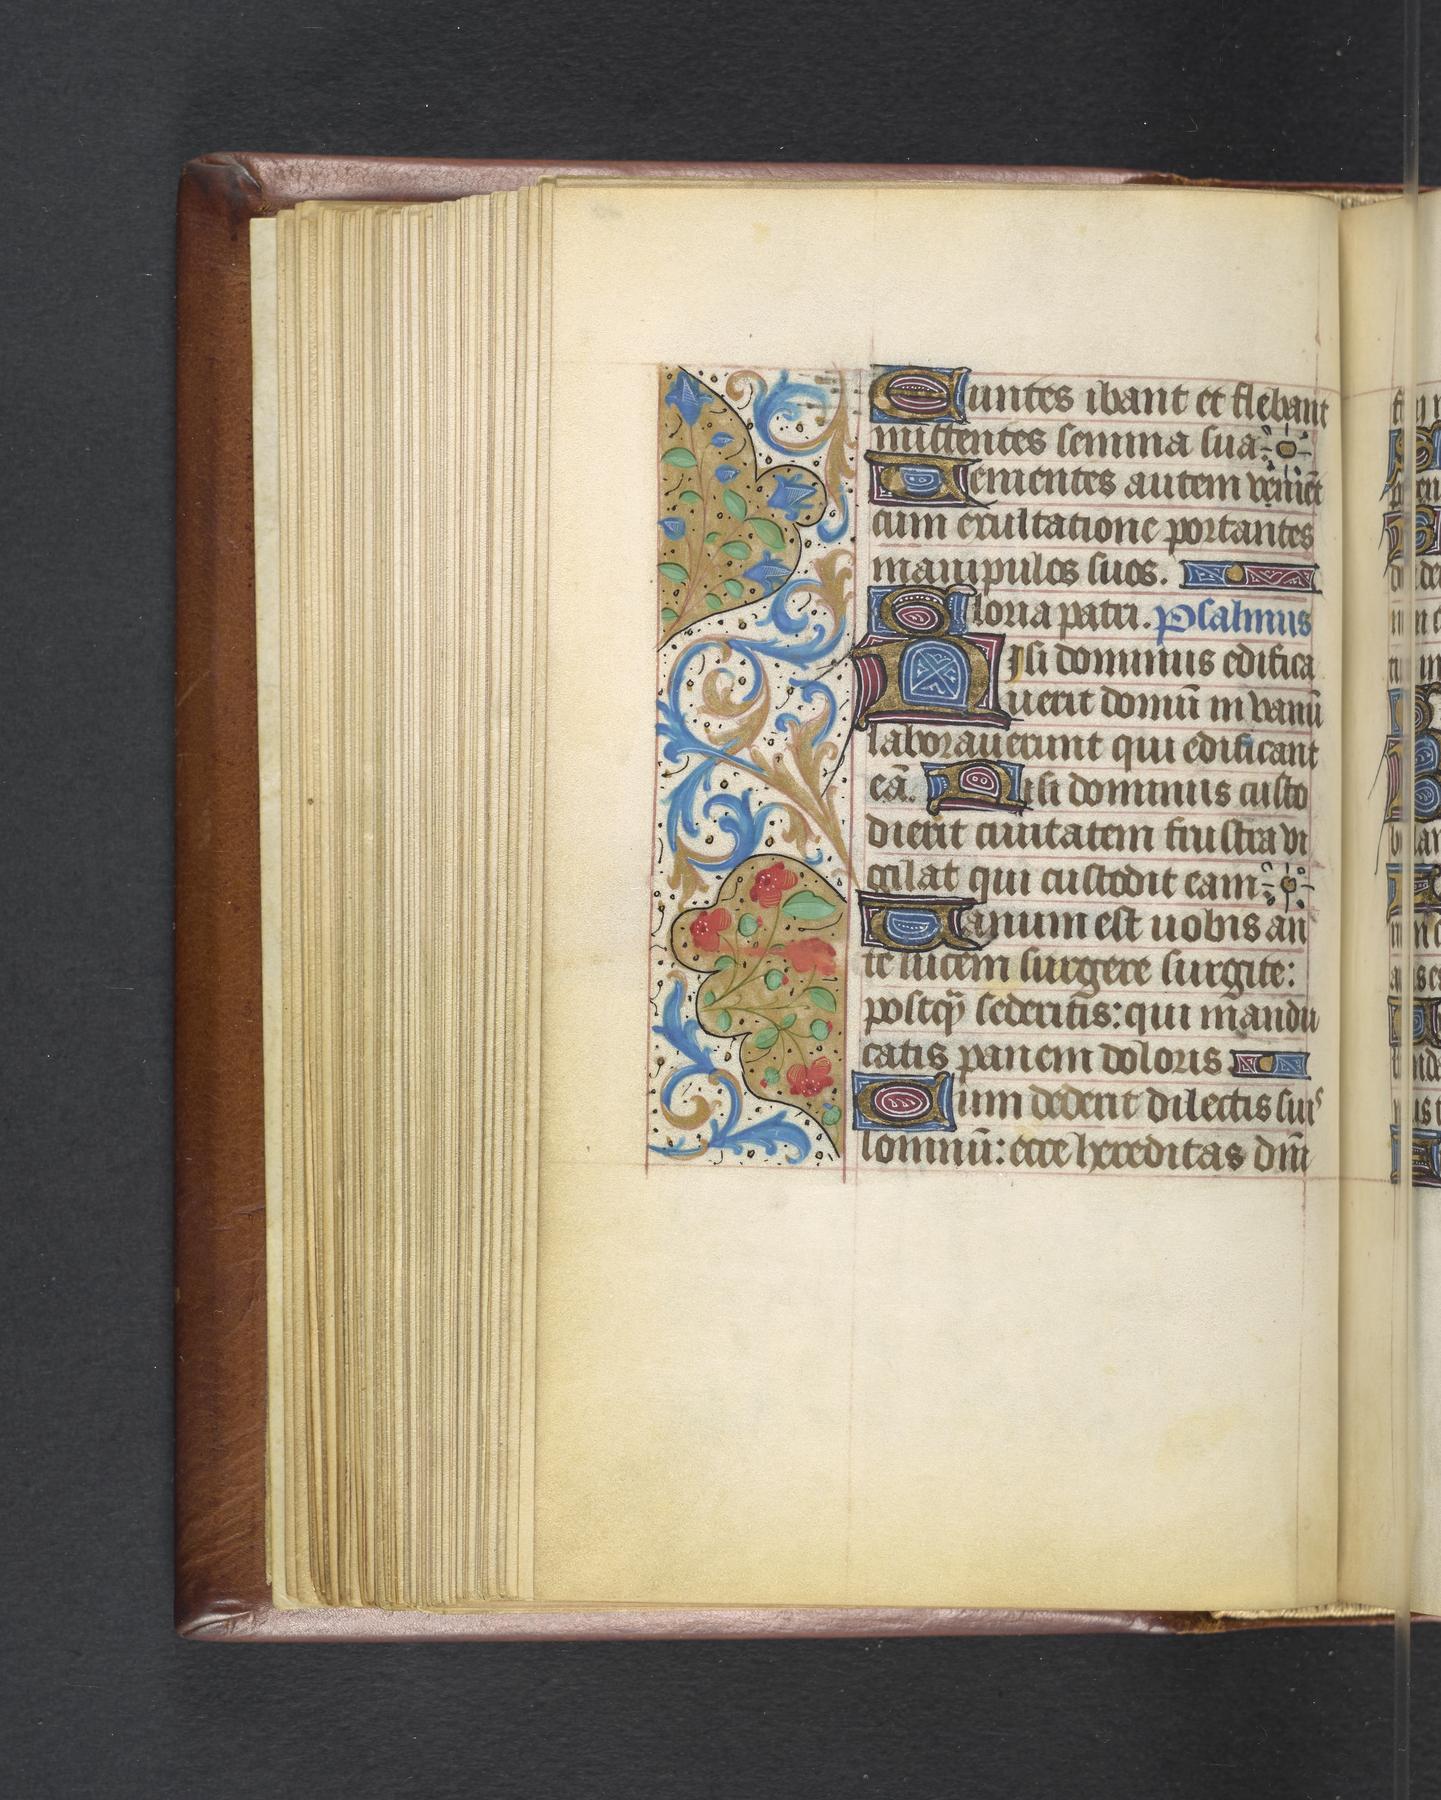 Euntes ibant et flebant
mittentes semina sua
Uenientes autem veniēt
cum exultatione portantes
manipulos suos.
Gloria patri. Psalmus
Nisi dominus edifica
uerit domū in vanū
laborauerunt qui edificant
eā. Nisi dominus custo
dierit ciuitatem frustra vi
gilat qui custodit eam
Uanum est uobis an
te lucem surgere surgite:
postq̄ sederitis: qui mandu
catis panem doloris
Cum dederit dilectis suis
somnū: ecce hereditas dm̄